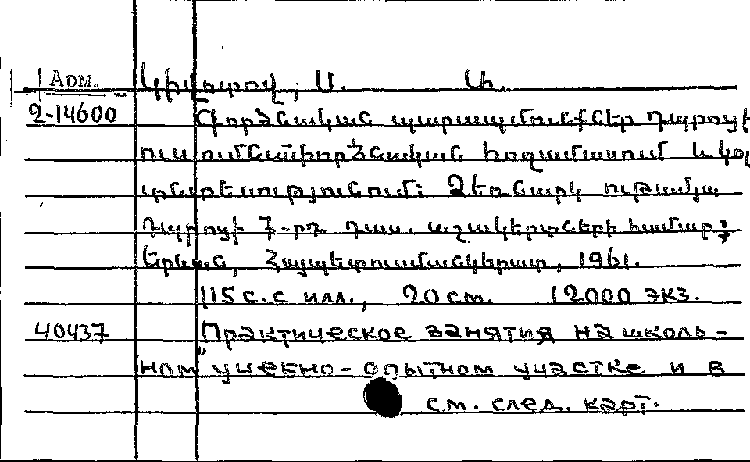 Арм. Կիրոտով, Ա. Ա.
2-14600 Գործնական պարապմունքներ դպրոցի
ուսումնափորձնական հողամասում և կոլ
տնտեսությունում։ Ձեռնարկ ութամյա
դպրոցի 7-րդ դաս. աշակերտների համար;
Երևան, Հայպետուսմանկհրատ, 1961.
115 с. с илл., 20 см. 12000 экз.
40437 "Практическое занятия на школь-
ном учебно-опытном участке и в
см. след. карт.